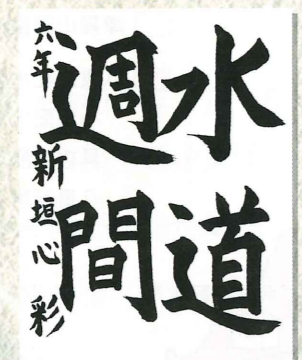 水道
週間
六年 新垣心彩